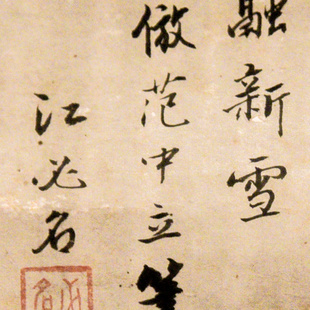 融新雪
倣范中立筆
江必名